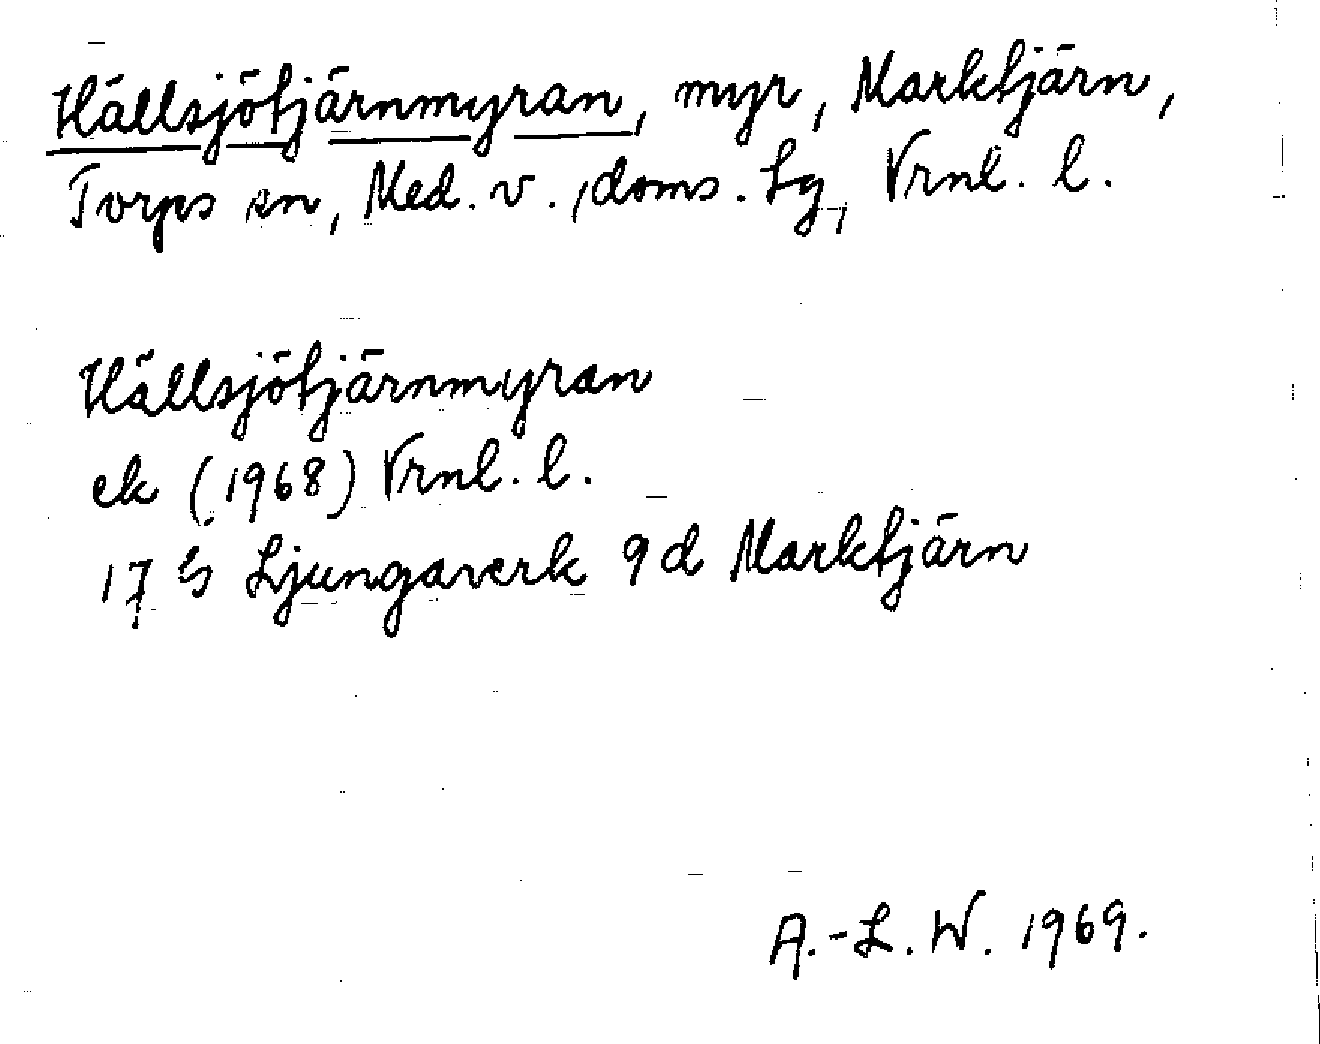 Hällsjötjärnmyran, myr, Marktjärn,
Torps sn, Med. v., doms. Lg, Vrnl. l.
Hällsjötjärnmyran
ek (1968) Vrnl. l.
17 G Ljungaverk 9d Marktjärn
A.-L. W. 1969.